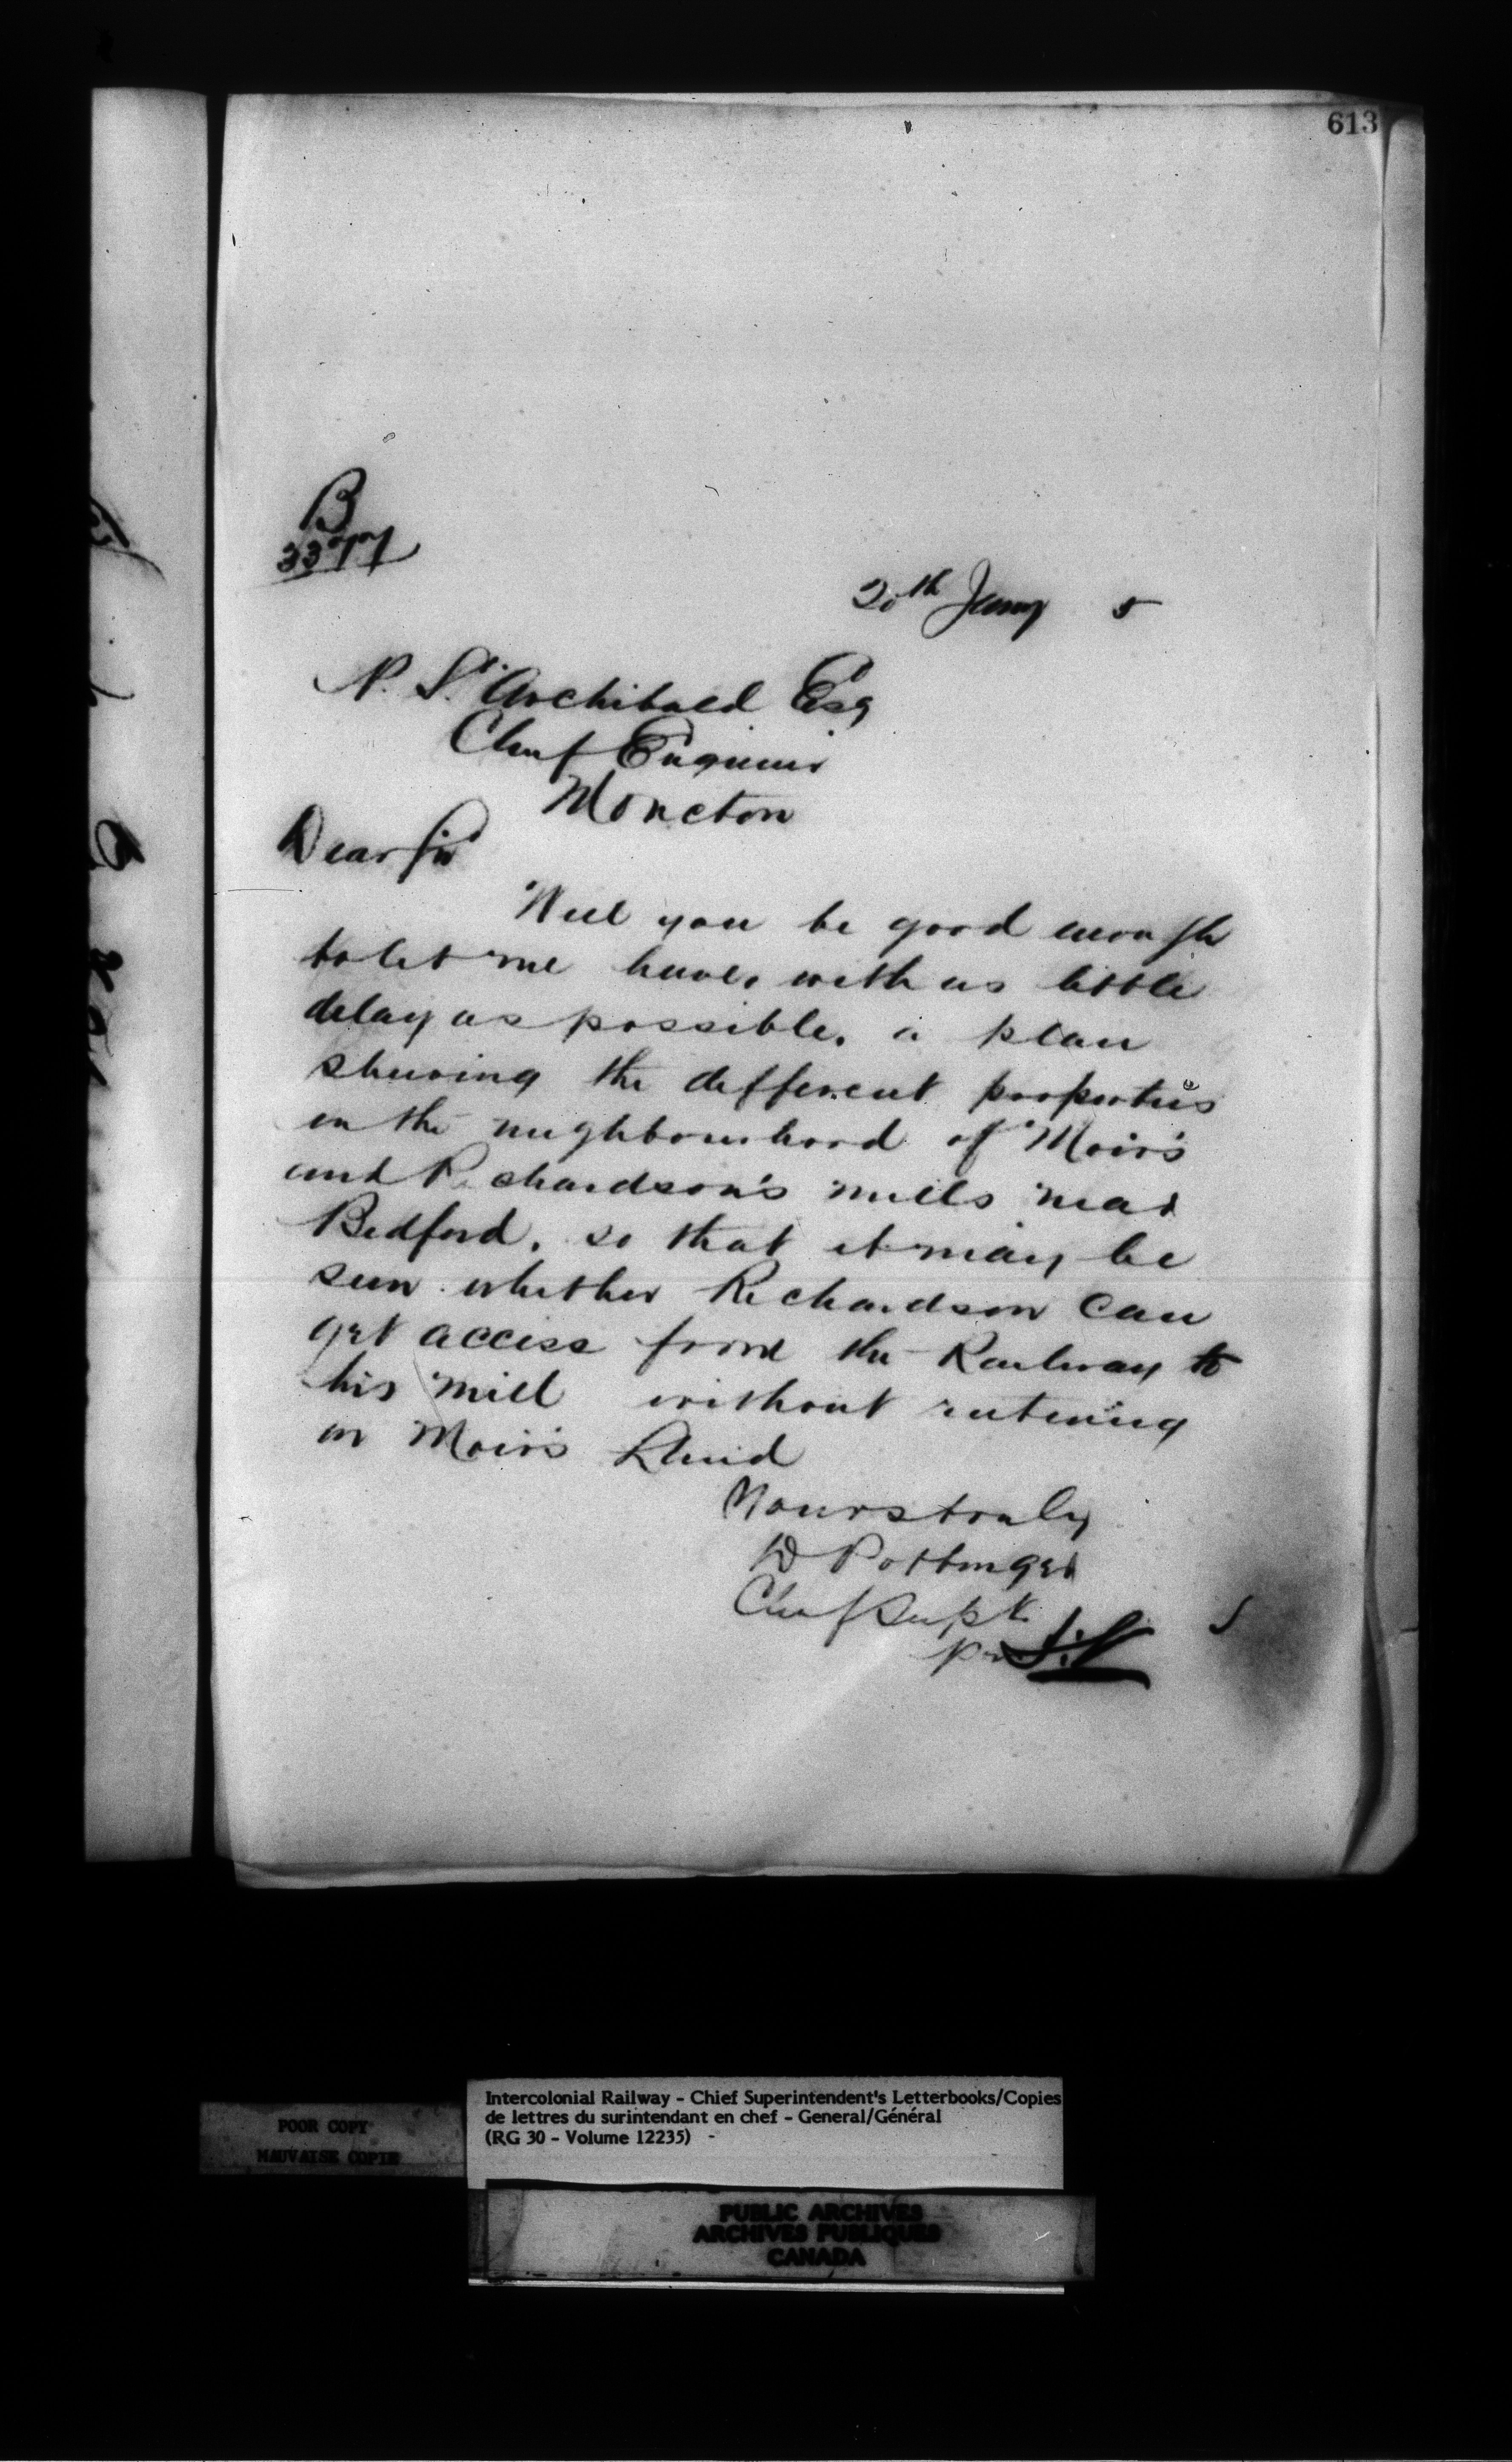 613
B
3377
20th Jany 5
P. S. Archibald Esq
Chief Engineer
Moncton
Dear Sir
Will you be good enough
to let me have, with as little
delay as possible, a plan
shewing the different properties
in the neighbourhood of Moir's
and Richardson's mills near
Bedford, so that it may be
seen whether Richardson can
get access from the Railway to
his mill without
on Moir's Land
Yours truly
D Pottinger
Chief Supt
Per
POOR COPY
MAUVAISE COPIE
Intercolonial Railway - Chief Superintendent's Letterbooks/Copies
de lettres du surintendant en chef - General/Général
(RG 30 - Volume 12235) -
PUBLIC ARCHIVES
ARCHIVES PUBLIQUES
CANADA